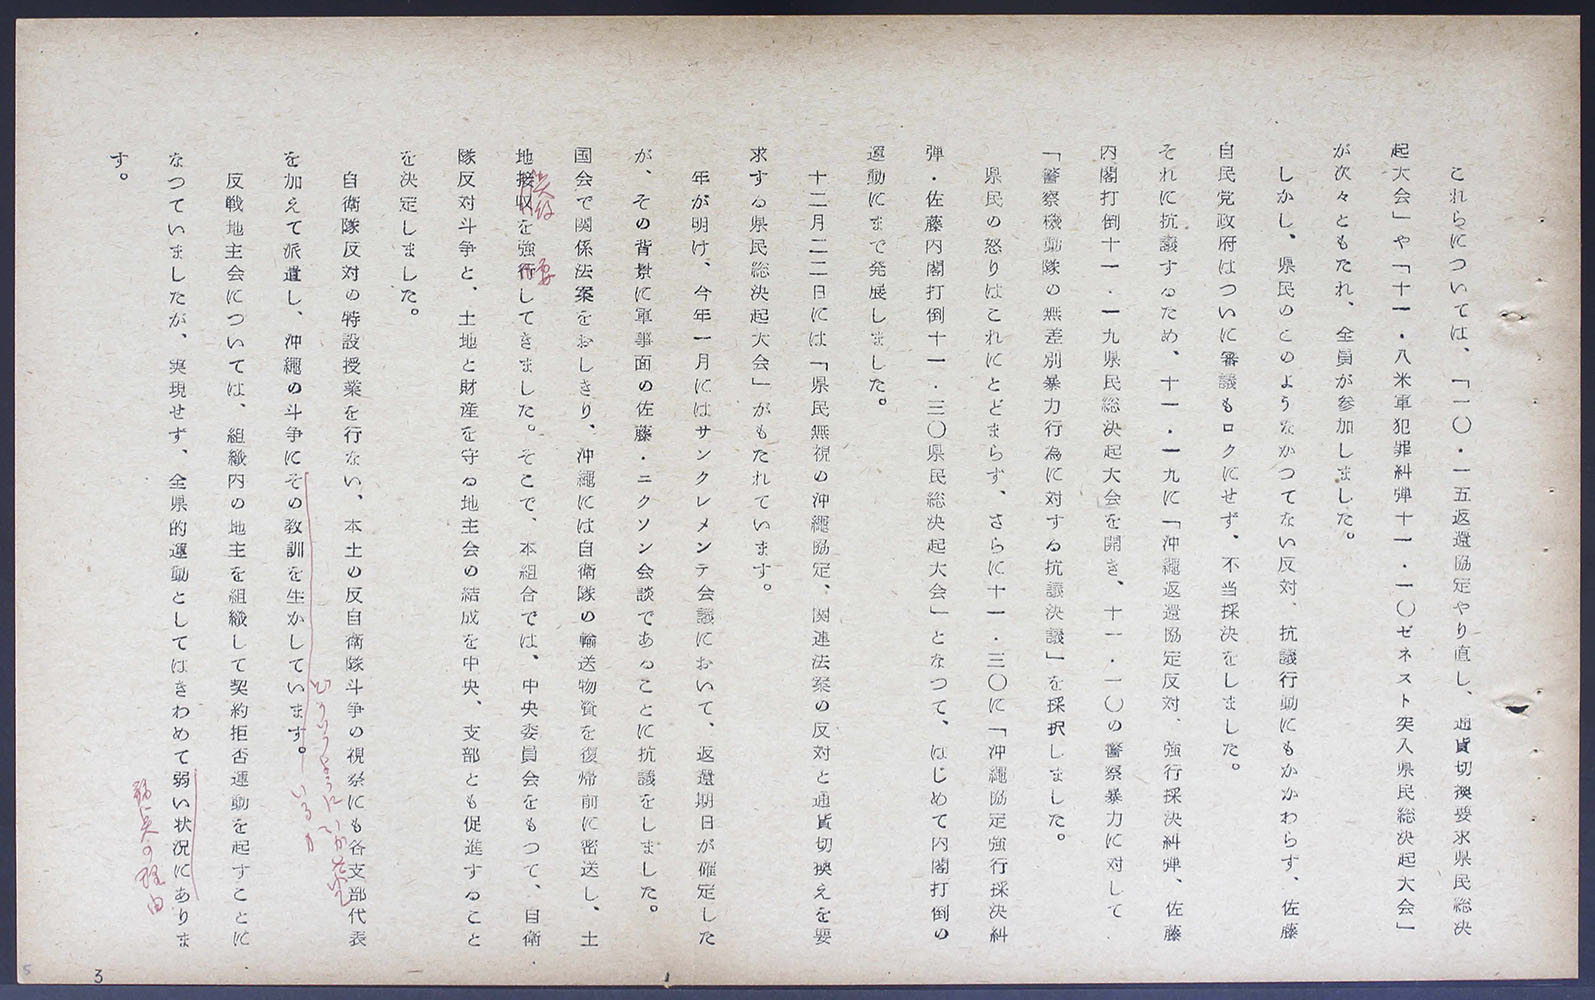 これらについては、「一〇・一五返還協定やり直し、通貨切換要求県民総決
起大会」や「十一・八米軍犯罪糾弾十一・一〇ゼネスト突入県民総決起大会」
が次々ともたれ、全員が参加しました。
しかし、県民のこのようなかつてない反対、抗議行動にもかかわらず、佐藤
自民党政府はついに審議もロクにせず、不当採決をしました。
それに抗議するため、十一・一九に「沖縄返還協定反対、強行採決糾弾、佐藤
内閣打倒十一・一九県民総決起大会」を開き、十一・一〇の警察暴力に対して
「警察機動隊の無差別暴力行為に対する抗議決議」を採択しました。
県民の怒りはこれにとどまらず、さらに十一・三〇に「沖縄協定強行採決糾
弾・佐藤内閣打倒十一・三〇県民総決起大会」となつて、はじめて内閣打倒の
運動にまで発展しました。
十二月二二日には「県民無視の沖縄協定、関連法案の反対と通貨切換えを要
求する県民総決起大会」がもたれています。
年が明け、今年一月にはサンクレメンテ会議において、返還期日が確定した
が、その背景に軍事面の佐藤・ニクソン会談であることに抗議をしました。
国会で関係法案をおしきり、沖縄には自衛隊の輸送物資を復帰前に密送し、土
地接収を強行してきました。そこで、本組合では、中央委員会をもつて、自衛
隊反対斗争と、土地と財産を守る地主会の結成を中央、支部とも促進すること
を決定しました。
自衛隊反対の特設授業を行ない、本土の反自衛隊斗争の視祭にも各支部代表
を加えて派遣し、沖縄の斗争にその教訓を生かしています。
どういうように
いるか
反戦地主会については、組織内の地主を組織して契約拒否運動を起すことに
なつていましたが、実現せず、全県的運動としてはきわめて弱い状況にありま
の理由
す。
3
5